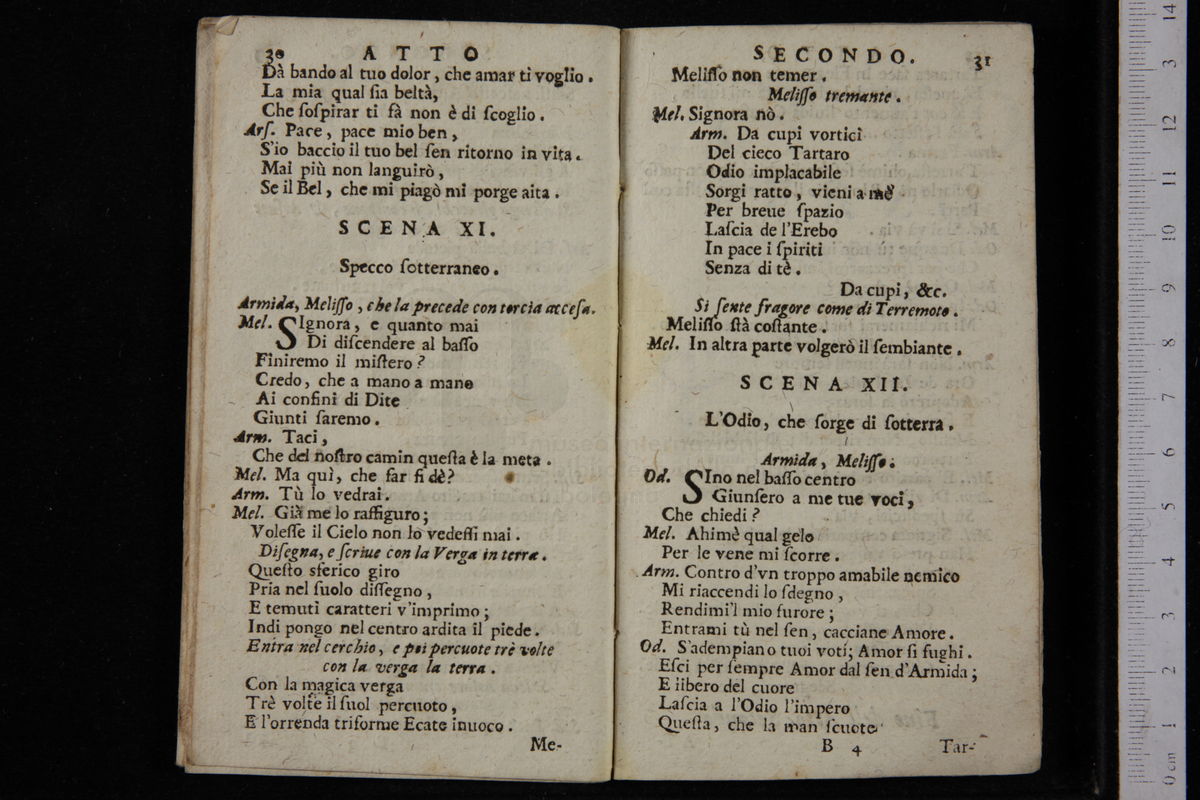 30 ATTO
Dà bando al tuo dolor, che amar ti voglio.
La mia qual ſia beltà,
Che ſoſpirar ti fà non è di ſcoglio.
Arſ. Pace, pace mio ben,
S'io baccio il tuo bel ſen ritorno in vita.
Mai più non languirò,
Se il Bel, che mi piagò mi porge aita.
SCENA XI.
Specco ſotterraneo.
Armida, Meliſſo, che la precede con torcia acceſa.
Mel. SIgnora, e quanto mai
Di diſcendere al baſſo
Finiremo il miſtero?
Credo, che a mano a mano
Ai confini di Dite
Giunti ſaremo.
Arm. Taci,
Che del noſtro camin queſta è la meta.
Mel. Ma quì, che far ſi dè?
Arm. Tù lo vedrai.
Mel. Già me lo raffiguro;
Voleſſe il Cielo non lo vedeſſi mai.
Diſegna, e ſcriue con la Verga in terra.
Queſto sferico giro
Pria nel ſuolo diſſegno,
E temuti caratteri v'imprimo;
Indi pongo nel centro ardita il piede.
Entra nel cerchio, e poi percuote trè volte
con la verga la terra.
Con la magica verga
Trè volte il ſuol percuoto,
E l'orrenda triforme Ecate inuoco.
Me-
SECONDO. 31
Meliſſo non temer.
Meliſſo tremante.
Mel. Signora nò.
Arm. Da cupi vortici
Del cieco Tartaro
Odio implacabile
Sorgi ratto, vieni a mè
Per breue ſpazio
Laſcia de l'Erebo
In pace i ſpiriti
Senza di tè.
Da cupi, &c.
Si ſente fragore come di Terremoto.
Meliſſo ſtà coſtante.
Mel. In altra parte volgerò il ſembiante.
SCENA XII.
L'Odio, che ſorge di ſotterra.
Armida, Meliſſo.
Od. SIno nel baſſo centro
Giunſero a me tue voci,
Che chiedi?
Mel. Ahimè qual gelo
Per le vene mi ſcorre.
Arm. Contro d'vn troppo amabile nemico
Mi riaccendi lo ſdegno,
Rendimi'l mio furore;
Entrami tù nel ſen, cacciane Amore.
Od. S'adempiano tuoi voti; Amor ſi fughi.
Eſci per ſempre Amor dal ſen d'Armida;
E libero del cuore
Laſcia a l'Odio l'impero
Queſta, che la man ſcuote
B 4 Tar-
14
3
12
11
10
9
8
7
6
5
4
3
2
1
0 cm